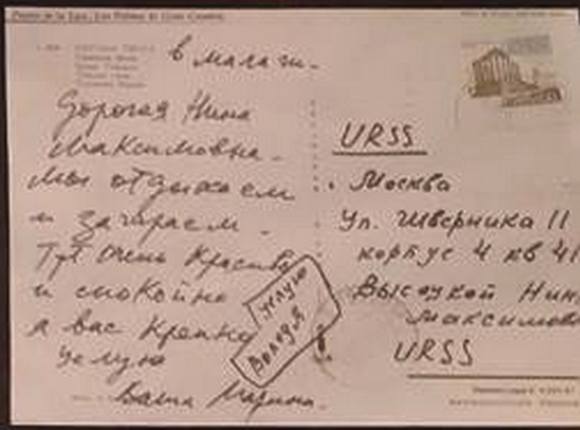 Puerto de la Luz. Las Palmas de Gran Canaria.
в мала
Дорогая Нина
Максимовна.
мы отдыхаем
и загараем.
Тут очень красиво
и спокойно
я вас крепко
целую
Ваша Марина.
целую
Володя
URSS
Москва
Ул. Шверника 11
корпус 4 кв 41
Высоцкой Нин
Максимов
URSS